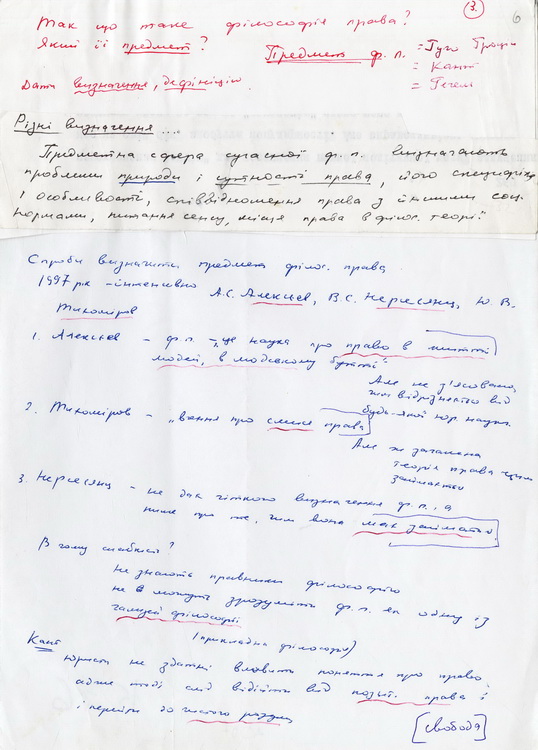 3.
6
Так що таке філософія права?
Який її предмет?
Предмет ф. п. = Гуго Гроцій
= Кант
= Гегель
Дати визначення, дефініцію.
Різні визначення...
Предметна сфера сучасної ф. п. визначають
проблеми природи і сутності права, його специфіка
і особливості, співвідношення права з іншими соц.
нормами, питання сенсу, місця права в філос. теорії."
Спроби визначити предмет філос. права
1997 рік – інтенсивно А.С. Алексієв, В.С. Нерсесянц, Ю. В.
Тихоміров
1. Алексієв – ф. п. – це наука про право в житті
людей, в людському бутті"
Але не з'ясовано,
чим відрізняється від
будь-якої юр. науки.
2. Тихоміров – „вчення про смисл права
Але ж загальна
теорія права цим
займається
3. Нерсесянц – не дає чіткого визначення ф. п., а
пише про те, чим вона має займатися.
В чому слабкість?
Не знають правники філософію
не можуть зрозуміти ф. п. як одну із
галузей філософії
(прикладна філософія)
Кант
юристи не здатні вловить поняття про право,
адже тоді слід відійти від позит. права і
і перейти до чистого розуму
[Свобода]